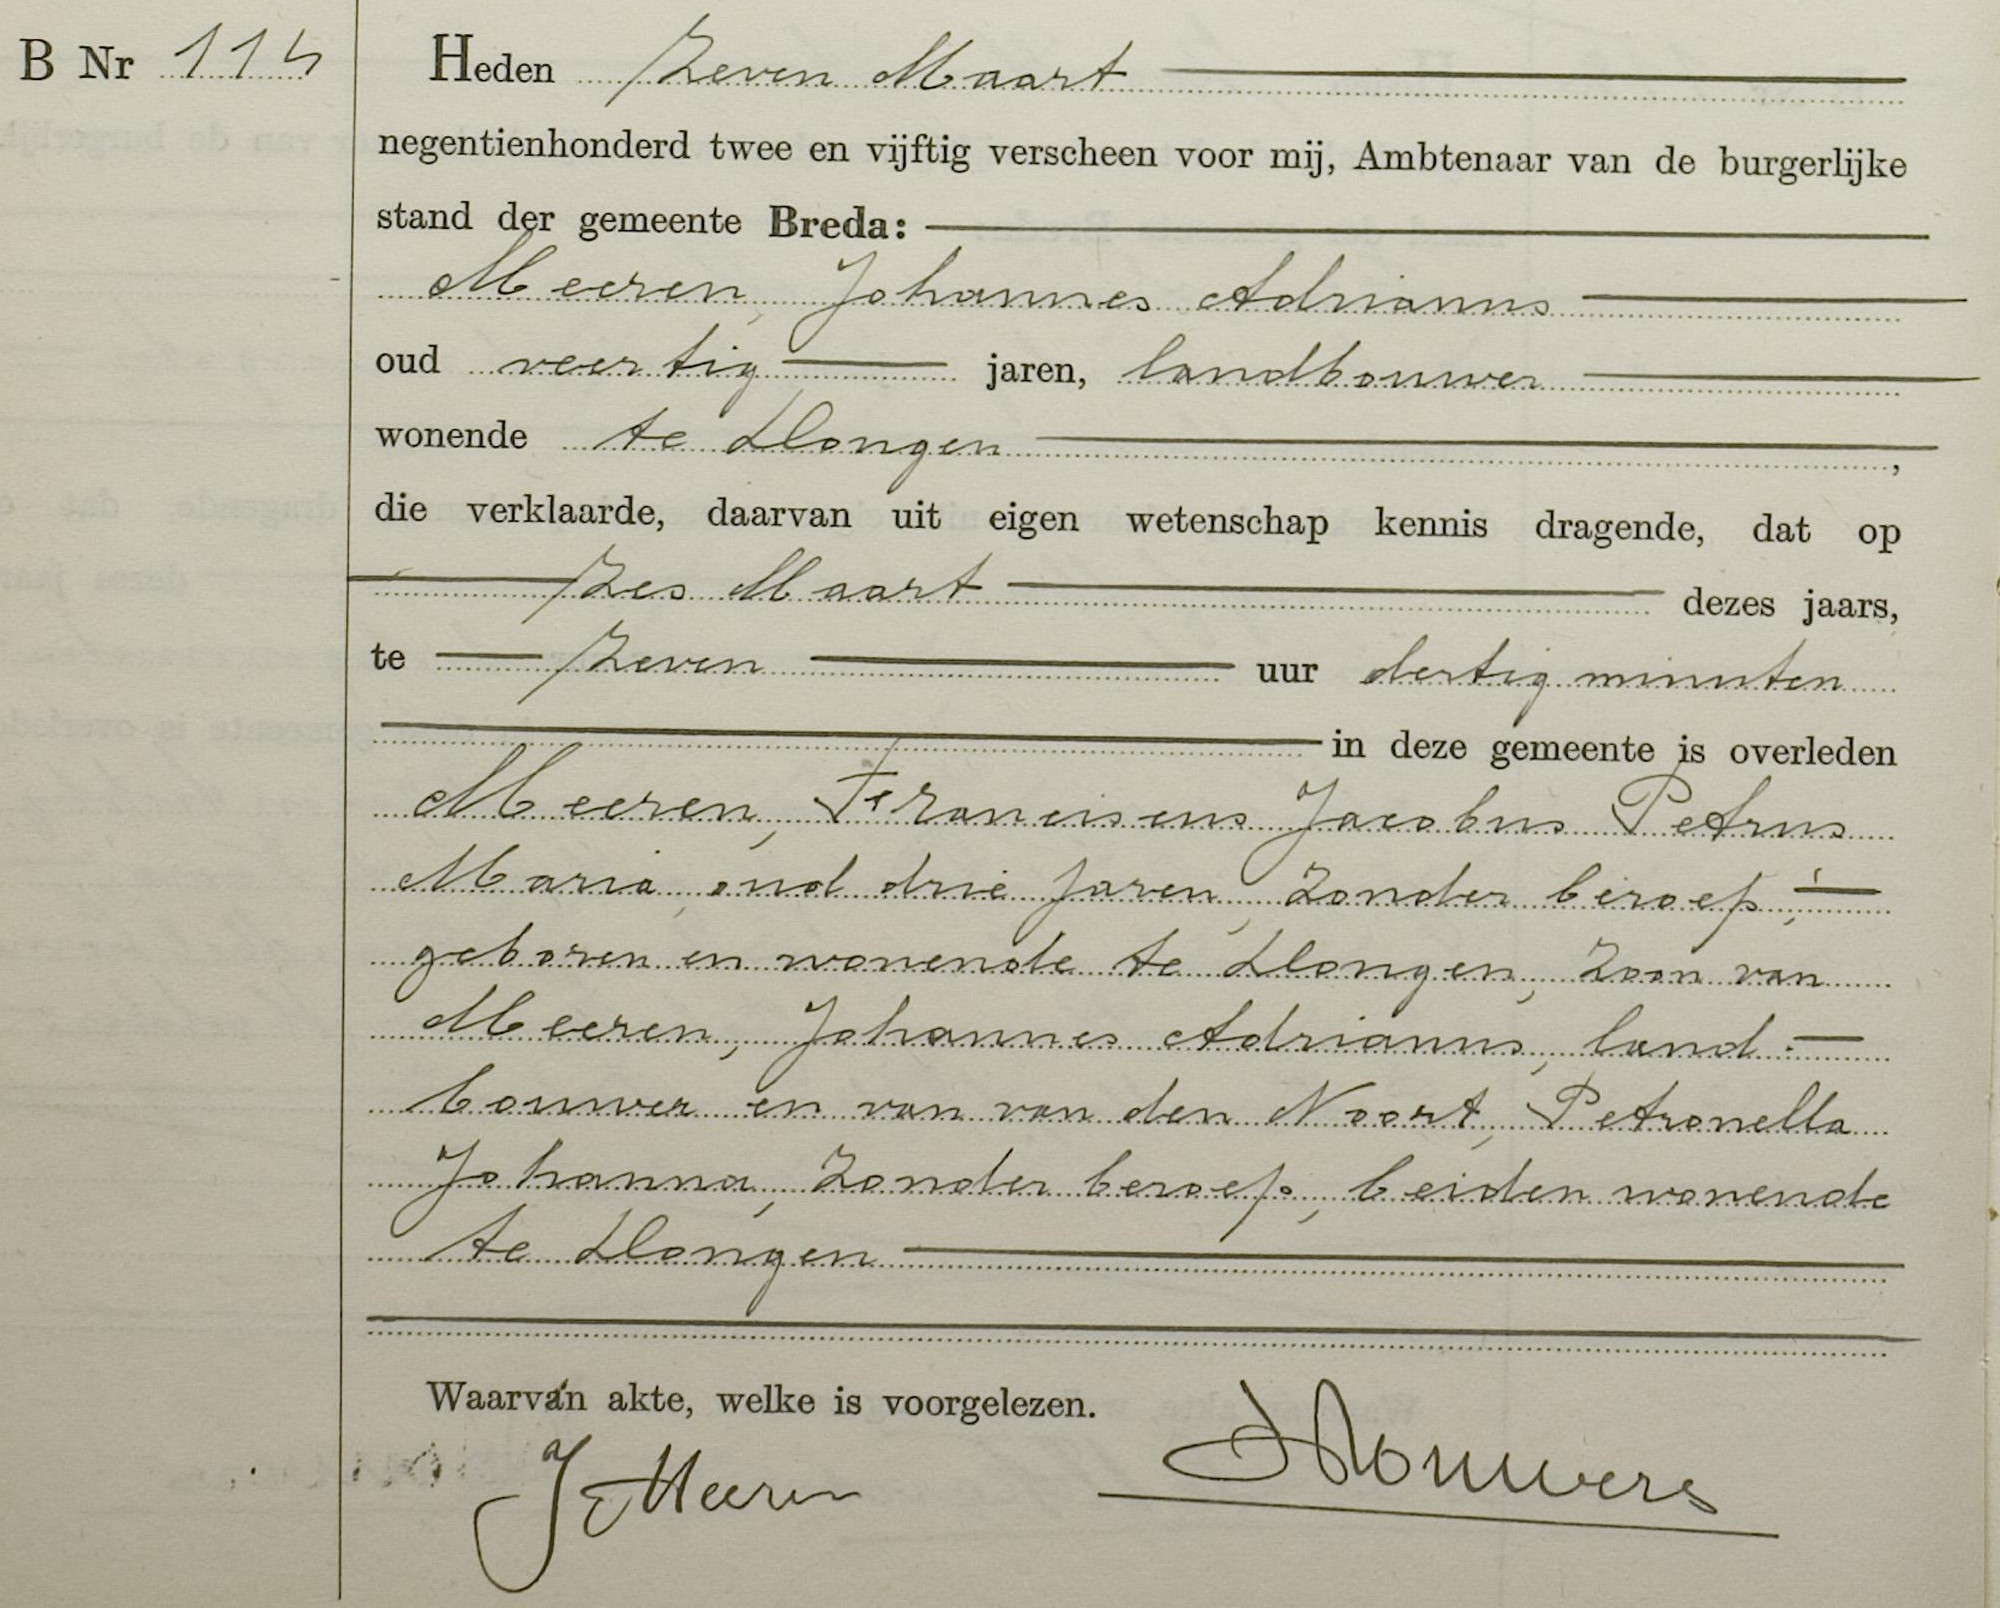 B Nr 114
Heden Zeven Maart
negentienhonderd twee en vijftig verscheen voor mij, Ambtenaar van de burgerlijke
stand der gemeente Breda:
Meeren, Johannes Adrianus
oud veertig jaren, landbouwer
wonende te Dongen,
die verklaarde, daarvan uit eigen wetenschap kennis dragende, dat op
Zes Maart dezes jaars,
te Zeven uur dertig minuten
in deze gemeente is overleden
Meeren, Franciscus Jacobus Petrus
Maria, oud drie jaren, zonder beroep,
geboren en wonende te Dongen, zoon van
Meeren, Johannes Adrianus, land-
bouwer en van van den Noort, Petronella
Johanna, zonder beroep, beiden wonende
te Dongen
Waarvan akte, welke is voorgelezen.
J Meeren